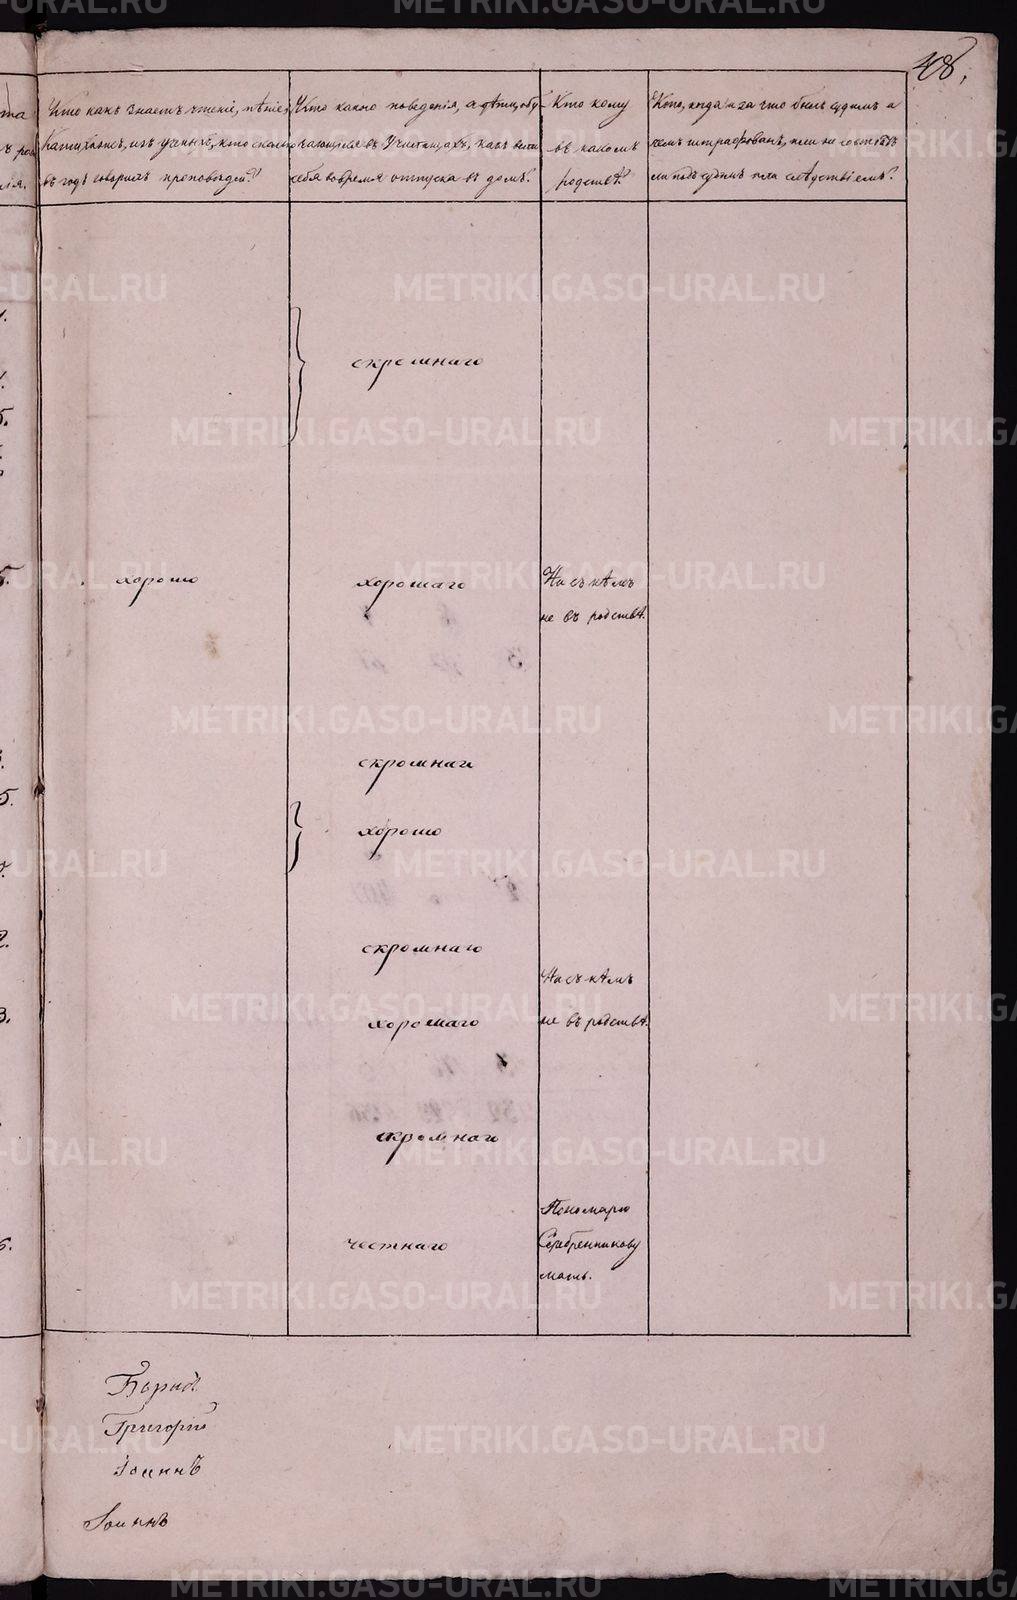 48.
Кто какъ знаетъ чтеніе, пѣніе,
Катихизисъ, изъ ученыхъ, кто сколько
въ годъ говорилъ проповѣдей?
Кто какого поведенія, а дѣти, обу-
чающіеся въ Училищахъ, какъ вели
себя во время отпуска въ домъ?
Кто кому
въ какомъ
родствѣ?
Кто, когда и за что былъ судимъ и
чѣмъ штрафованъ, или не состоитъ
ли подъ судомъ или слѣдствіемъ?
скромнаго
хорошо
хорошаго
Ни съ кѣмъ
не въ родствѣ.
скромнаго
хорошо
скромнаго
Ни съ кѣмъ
не въ родствѣ.
хорошаго
скромнаго
честнаго
Пономарю
Серебренникову
мать.
Григорій
Іоаннъ
Іоаннъ
METRIKI.GASO-URAL.RU